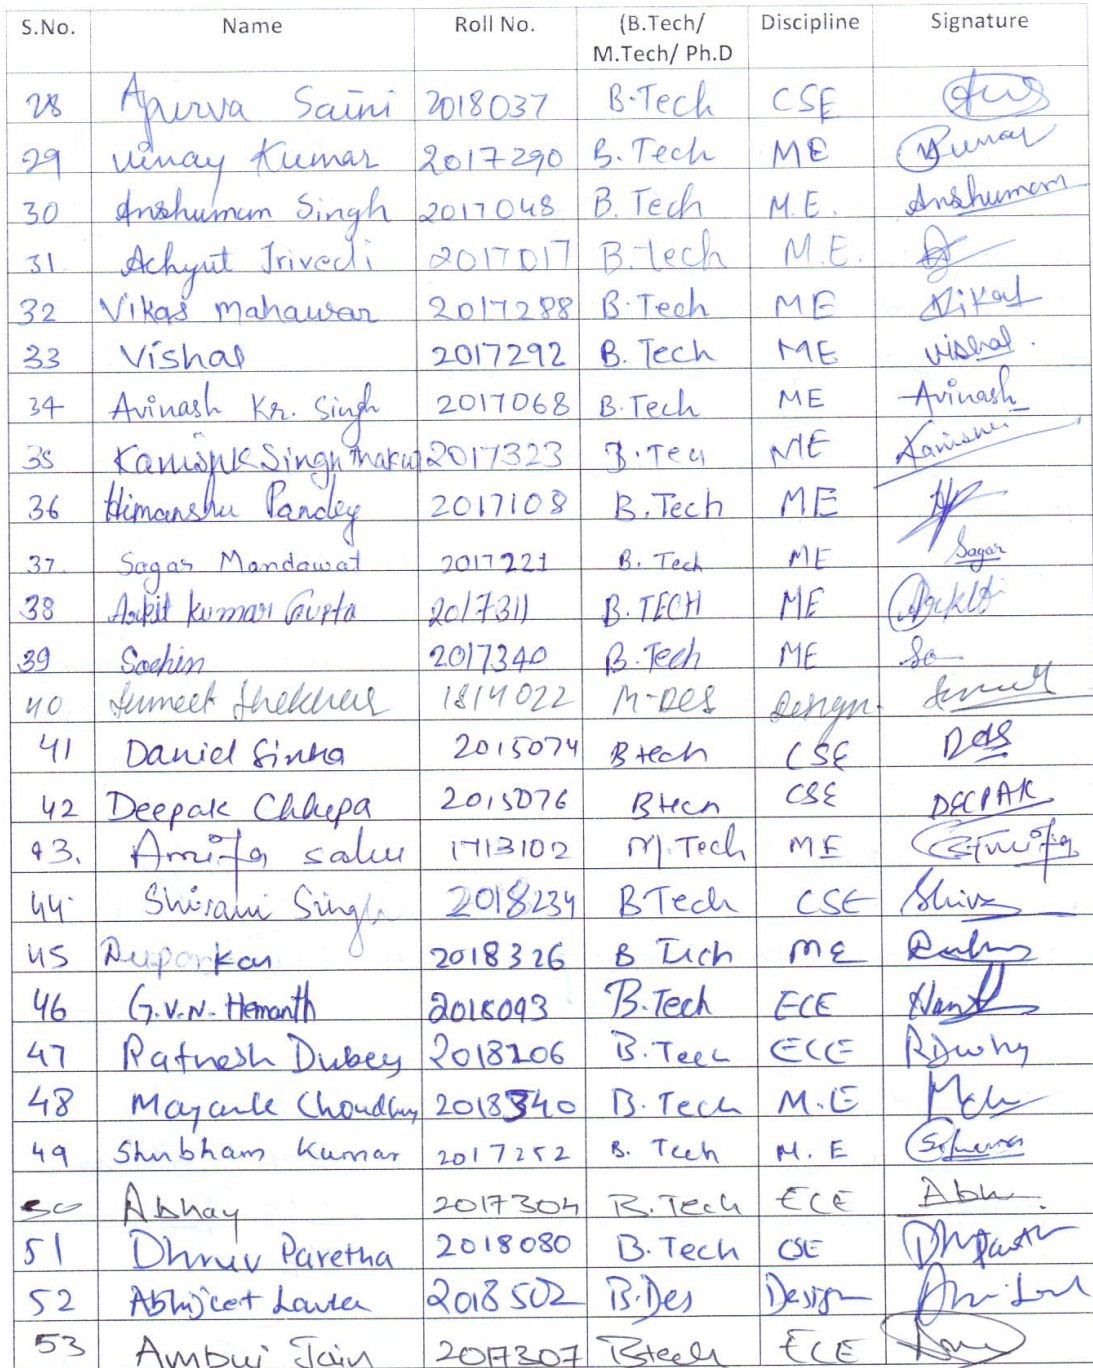 S.No. Name Roll No. (B.Tech/ M.Tech/ Ph.D Discipline Signature
28 Apurva Saini 2018037 B.Tech CSE
29 Vinay Kumar 2017290 B.Tech ME
30 Anshuman Singh 2017048 B.Tech M.E. Anshuman
31 Achyut Trivedi 2017017 B.tech M.E.
32 Vikas Mahawar 2017288 B.Tech ME Vikas
33 Vishal 2017292 B.Tech ME vishal.
34 Avinash Kr. Singh 2017068 B.Tech ME Avinash
35 Kanishk Singh Thakur 2017323 B.Tech ME
36 Himanshu Pandey 2017108 B.Tech ME HP
37. Sagar Mandawat 2017221 B. Tech ME Sagar
38 Ankit Kumar Gupta 2017311 B.TECH ME
39 Sachin 2017340 B.Tech ME Sa
40 Sumeet Shekhar 1814022 M-DES Design.
41 Daniel Sinha 2015074 Btech CSE
42 Deepak Chhepa 2015076 Btech CSE DEEPAK
43. sahu 1713102 M.Tech ME
44. Shivani Singh 2018234 BTech CSE Shiva
45 2018326 B Tech ME
46 G.V.N. Hemanth 2018093 B.Tech ECE
47 Ratnesh Dubey 2018206 B.Tech ECE
48 Mayank Choudhary 2018340 B.Tech M.E
49 Shubham Kumar 2017252 B. Tech M.E
50 Abhay 2017304 B.Tech ECE Abh
51 Dhruv Paretha 2018080 B.Tech CSE
52 Abhijeet 2018502 B.Des Design
53 Ambuj Jain 2017307 Btech ECE